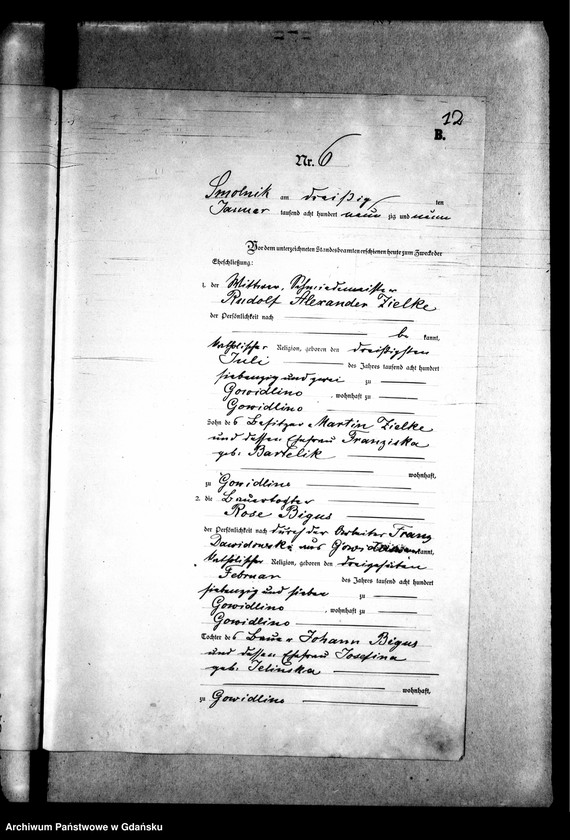 12
B.
Nr. 6
Smolnik am dreißig ten
Januar tausend acht hundert neun zig und neun
Vor dem unterzeichneten Standesbeamten erschienen heute zum Zwecke der
Eheschließung:
1. der Wittwer, Schmiedemeister
Rudolf Alexander Zielke
der Persönlichkeit nach
be kannt,
katholischer Religion, geboren den dreißigsten
Juli des Jahres tausend acht hundert
siebenzig und zwei zu
Gowidlino , wohnhaft zu
Gowidlino
Sohn des Besitzer Martin Zielke
und dessen Ehefrau Franziska
geb. Bartelik
wohnhaft,
zu Gowidlino
2. die Bauertochter
Rose Bigus
der Persönlichkeit nach durch der Arbeiter Franz
Dawidowski aus kannt,
katholischer Religion, geboren den
Februar des Jahres tausend acht hundert
siebenzig und sieben zu
Gowidlino , wohnhaft zu
Gowidlino
Tochter des Bauer Johann Bigus
und dessen Ehefrau Josefina
geb. Jelinska
wohnhaft,
zu Gowidlino
Archiwum Państwowe w Gdańsku